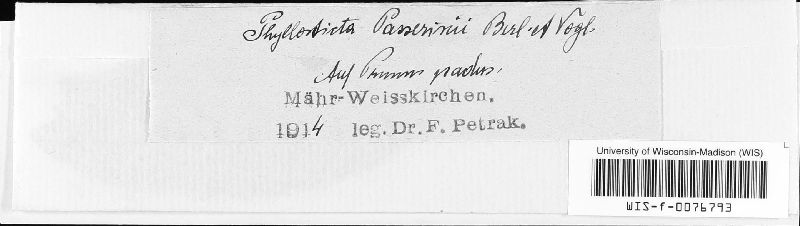 Phyllosticta Passerinii Berl. et Vogl.
Auf Prunus padus.
Mähr-Weisskirchen.
1914 leg. Dr. F. Petrak.
University of Wisconsin-Madison (WIS)
WIS-f-0076793